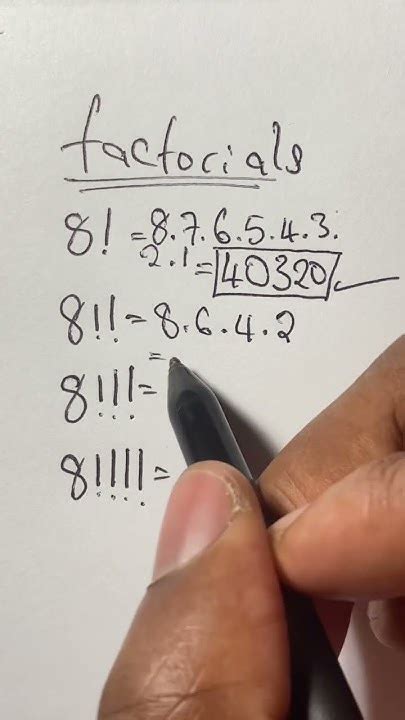 factorials
8! = 8.7.6.5.4.3.
2.1 = 40320
8!! = 8.6.4.2
=
8!!! =
8!!!! =